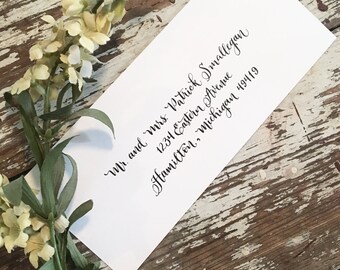 Mr and Mrs. Patrick Smallegan
1234 Eastern Avenue
Hamilton, Michigan 49419